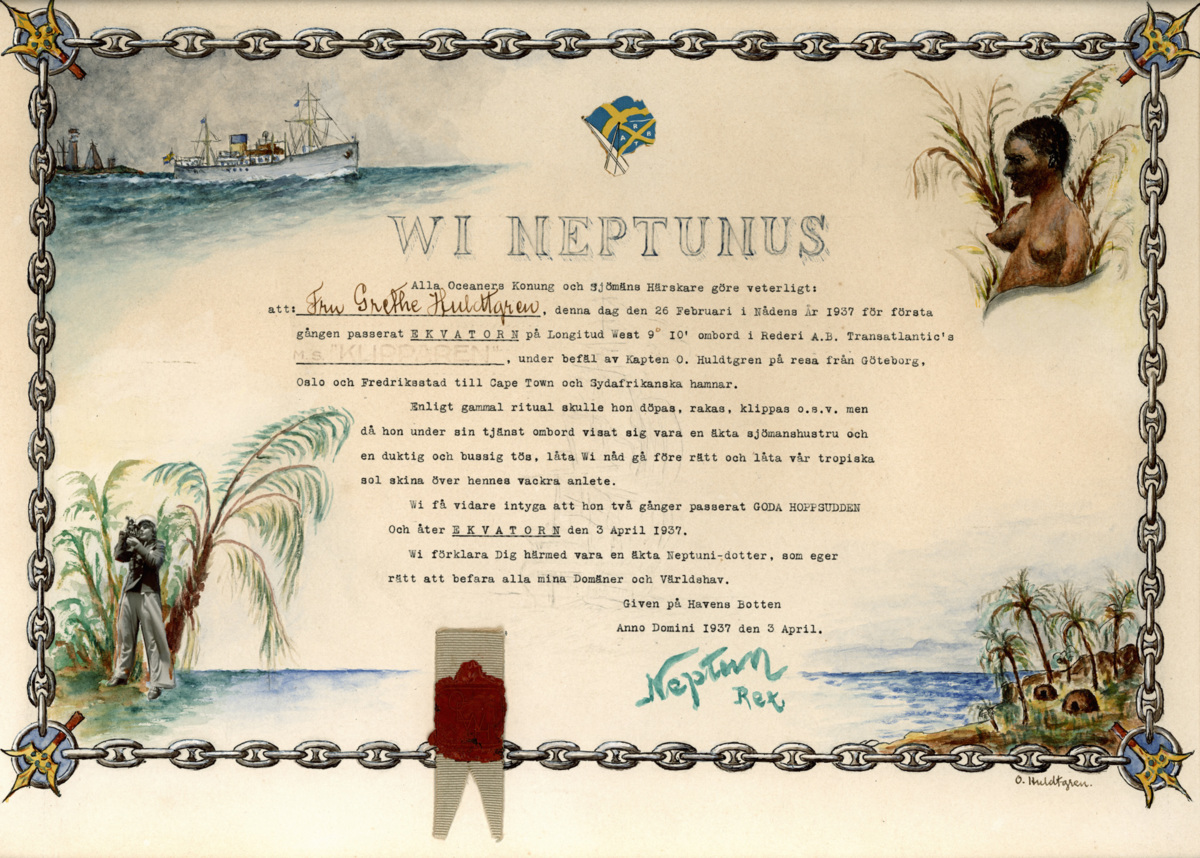 WI NEPTUNUS
Alla Oceaners Konung och Sjömäns Härskare göre veterligt:
att: Fru Grethe Huldtgren, denna dag den 26 Februari i Nådens År 1937 för första
gången passerat EKVATORN på Longitud West 9° 10' ombord i Rederi A.B. Transatlantic's
M.S. "KLIPPAREN", under befäl av Kapten O. Huldtgren på resa från Göteborg,
Oslo och Fredriksstad till Cape Town och Sydafrikanska hamnar.
Enligt gammal ritual skulle hon döpas, rakas, klippas o.s.v. men
då hon under sin tjänst ombord visat sig vara en äkta sjömanshustru och
en duktig och bussig tös, låta Wi nåd gå före rätt och låta vår tropiska
sol skina över hennes vackra anlete.
Wi få vidare intyga att hon två gånger passerat GODA HOPPSUDDEN
Och åter EKVATORN den 3 April 1937.
Wi förklara Dig härmed vara en äkta Neptuni-dotter, som eger
rätt att befara alla mina Domäner och Världshav.
Given på Havens Botten
Anno Domini 1937 den 3 April.
Neptun
Rex
O. Huldtgren.